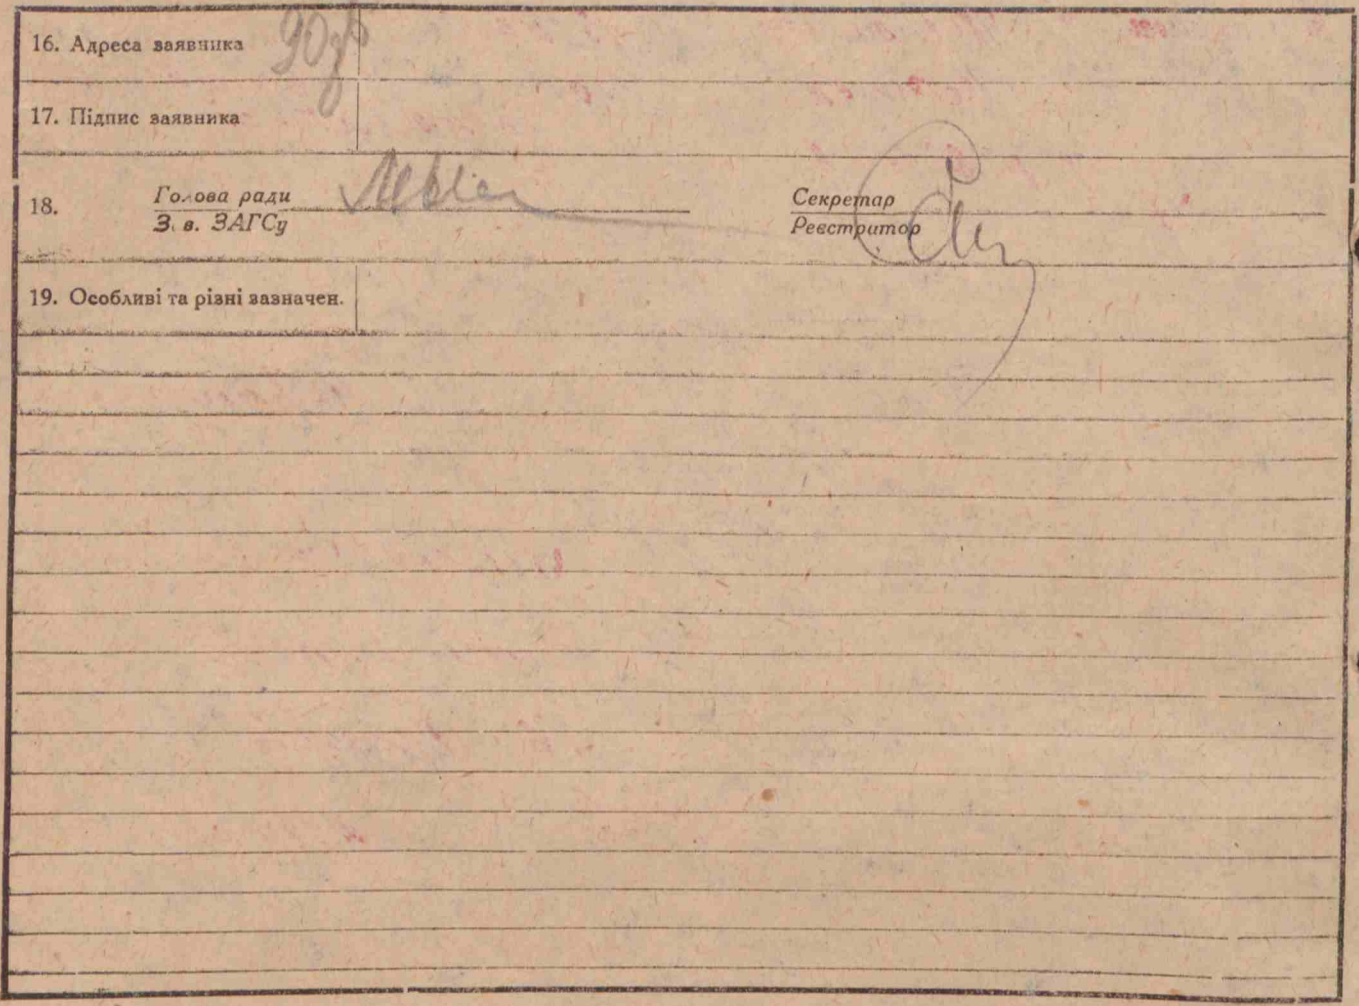 16. Адреса заявника
17. Підпис заявника
18. Голова ради Секретар
З. в. ЗАГСу Реєстратор
19. Особливі та різні зазначен.